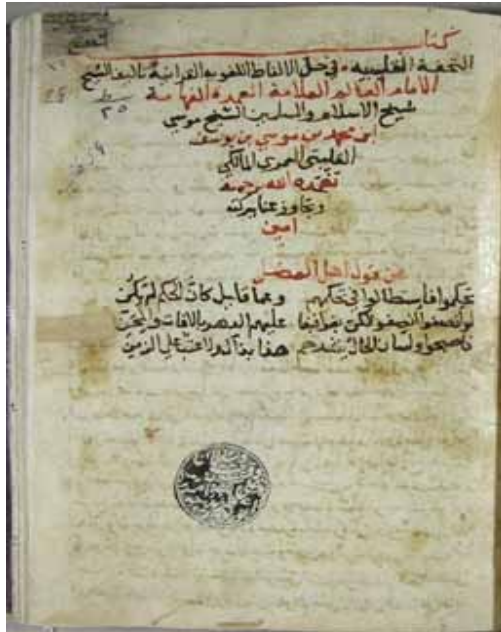 كتاب
التحفة القليبيه في حل الالفاظ اللغوية القرانية تاليف الشيخ
الامام العالم العلامة العمدة الفهامة
شيخ الاسلام والمسلمين الشيخ موسي
ابن محمد بن موسي بن يوسف
القليبي المالكي
تغمده الله برحمته
وتجاوز عنا ببركته
امين
من قول اهل الفضل
تحكموا فاستطالوا في تحكمهم وعما قليل كان الحكم لم يكن
لو انصفوا انصفوا لكن بغوا فبغا عليهم الدهر بالافات والمحن
فاصبحوا ولسان الحال ينشدهم هذا بذاك ولا عتب علي الزمن